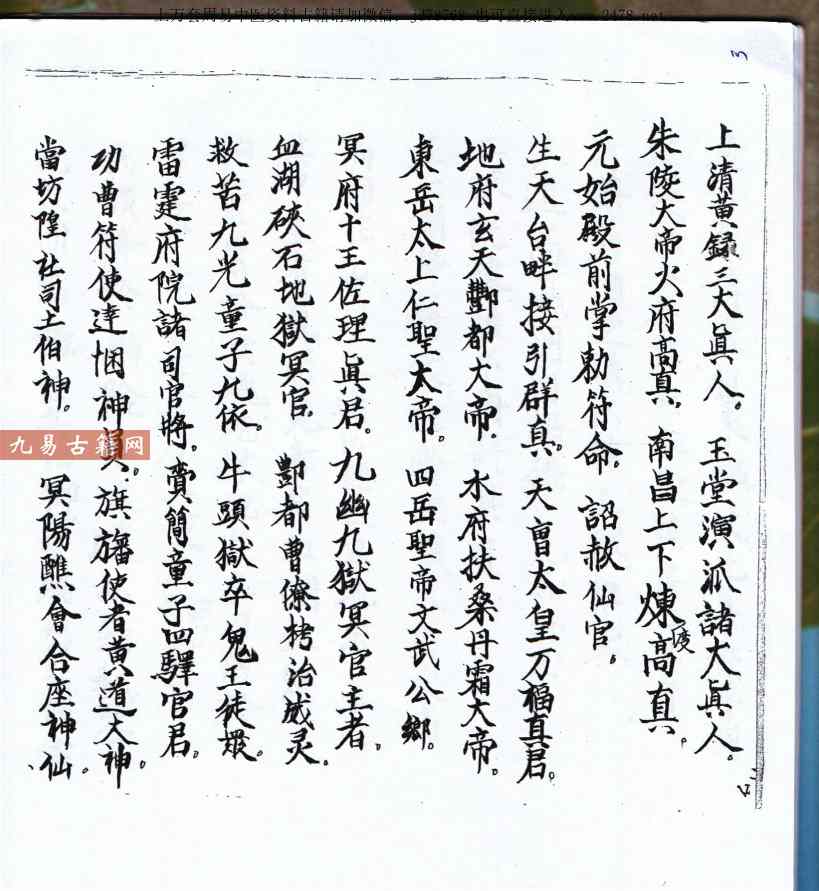 上清黄録三大眞人。玉堂演派諸大眞人。
朱陵大帝火府高真。南昌上下煉度高真。
元始殿前掌勅符命。詔赦仙官。
生天台畔接引群真。天曹太皇万福真君。
地府玄天酆都大帝。水府扶桑丹霜大帝。
東岳太上仁聖大帝。四岳聖帝文武公鄉。
冥府十王佐理眞君。九幽九獄冥官主者。
血湖硤石地獄冥官。酆都曹僚栲治威灵。
救苦九光童子九依。牛頭獄卒鬼王徒眾。
雷霆府院諸司官將。賫簡童子四驛官君。
功曹符使達悃神員。旗旛使者黄道大神。
當坊隍社司土伯神。冥陽醮會合座神仙。
九易古籍网